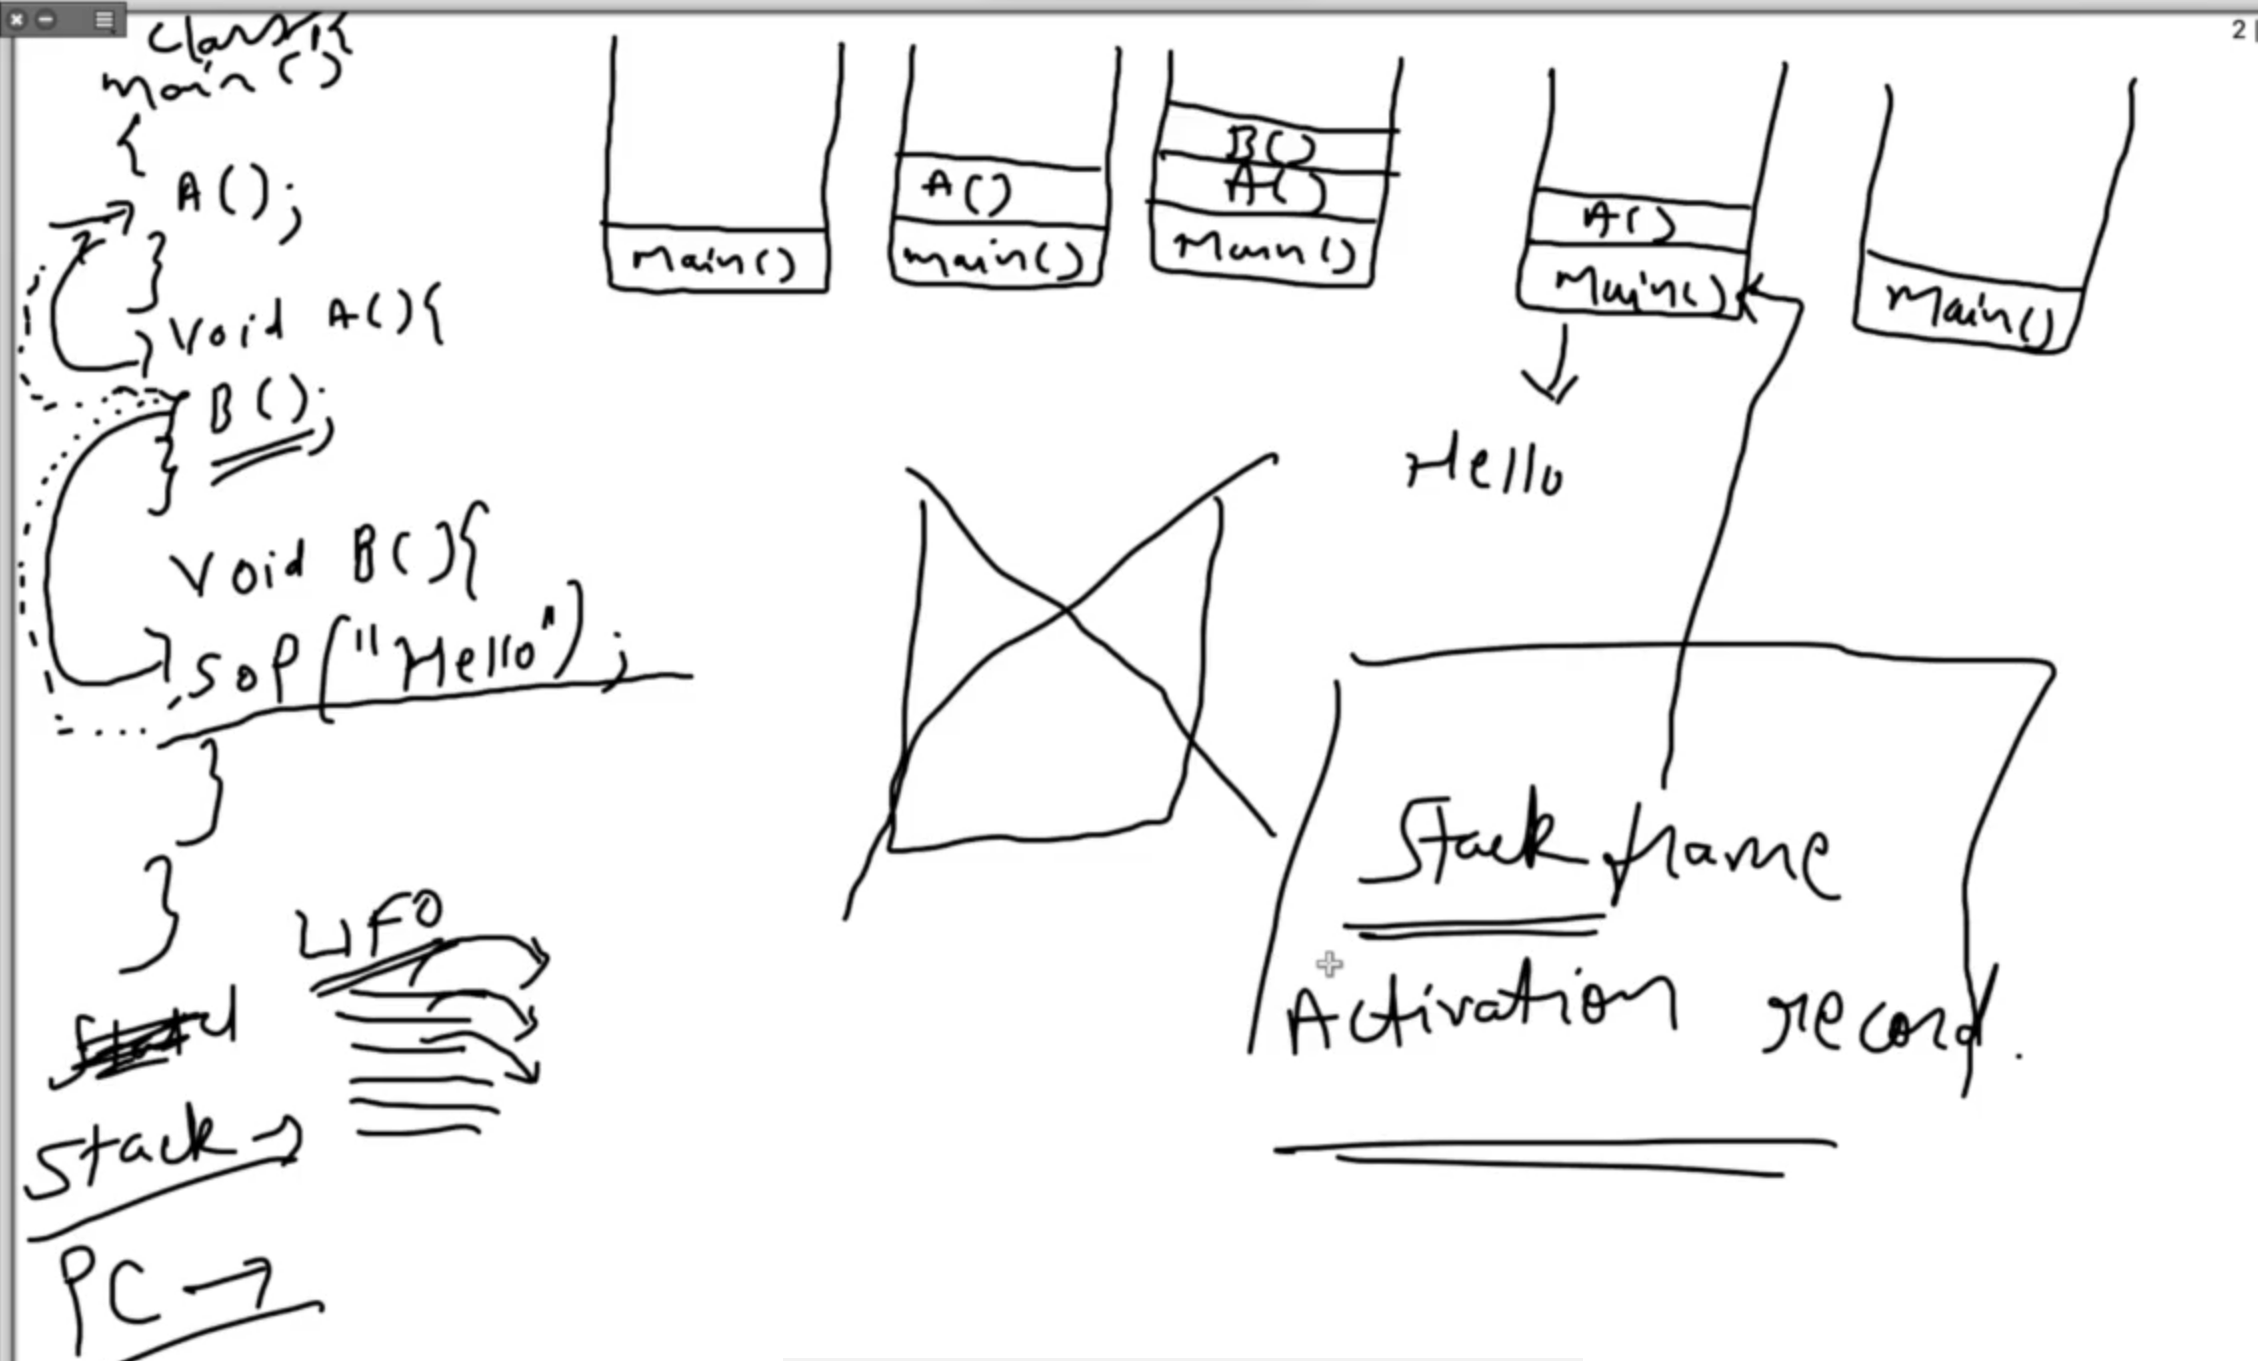 class {
main ()
{
A();
}
void A(){
B();
}
void B(){
SOP("Hello");
}
}
LIFO
Stack →
PC →
Main()
A()
main()
B()
A()
Main()
A()
Main()
Main()
Hello
Stack frame
Activation record.
2